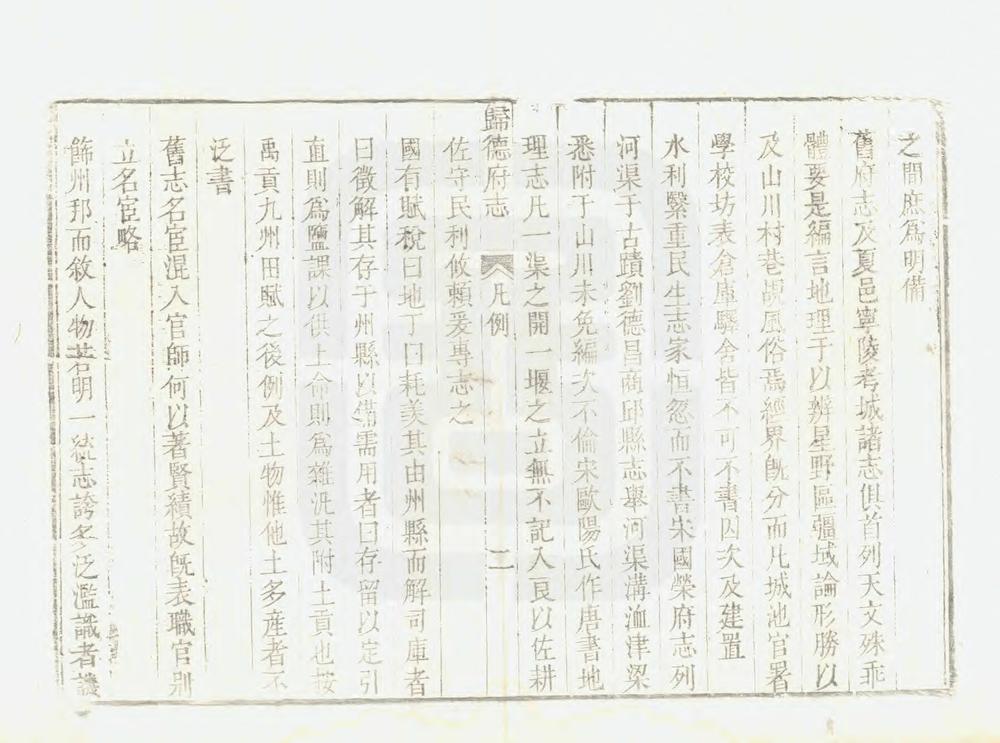 之間庶為明備
舊府志及夏邑寧陵考城諸志俱首列天文殊乖
體要是編言地理于以辨星野區疆域論形勝以
及山川村巷覘風俗焉經界既分而凡城池官署
學校坊表倉庫驛舍皆不可不書因次及建置
水利繫重民生志家恒忽而不書宋國榮府志列
河渠于古蹟劉德昌商邱縣志舉河渠溝洫津梁
悉附于山川未免編次不倫宋歐陽氏作唐書地
理志凡一渠之開一堰之立無不記入良以佐耕
歸德府志
凡例
二
佐守民利攸賴爰專志之
國有賦稅曰地丁曰耗羡其由州縣而解司庫者
曰徵解其存于州縣以備需用者曰存留以定引
直則為鹽課以供上命則為雜汎其附土貢也按
禹貢九州田賦之後例及土物惟他土多產者不
泛書
舊志名宦混入官師何以著賢績故既表職官別
立名宦略
飾州邦而敘人物若明一統志誇多泛濫識者譏